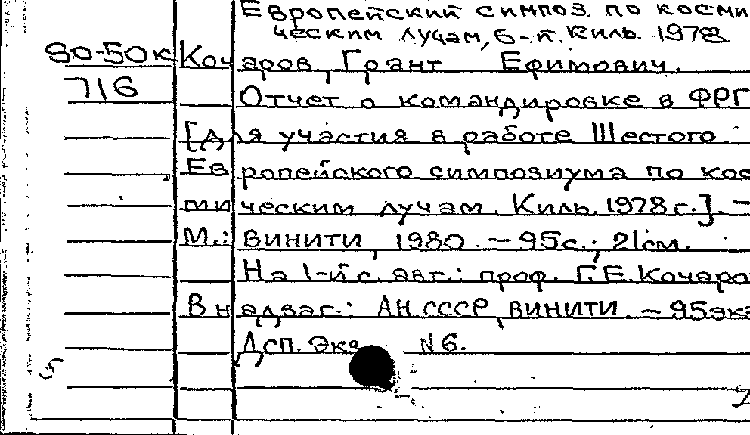 Европейский симпоз. по косми-
ческим лучам, 6-й. Киль. 1978
80-50к Кочаров, Грант Ефимович.
716 Отчет о командировке в ФРГ
[для участия в работе Шестого
Европейского симпозиума по кос
мическим лучам. Киль. 1978 г.]. -
М.: ВИНИТИ, 1980. - 95с.; 21см.
На 1-й с. авт.: проф. Г.Е. Кочаро
В надзаг.: АН СССР, ВИНИТИ. - 95экз
Дсп. Экз. N6.